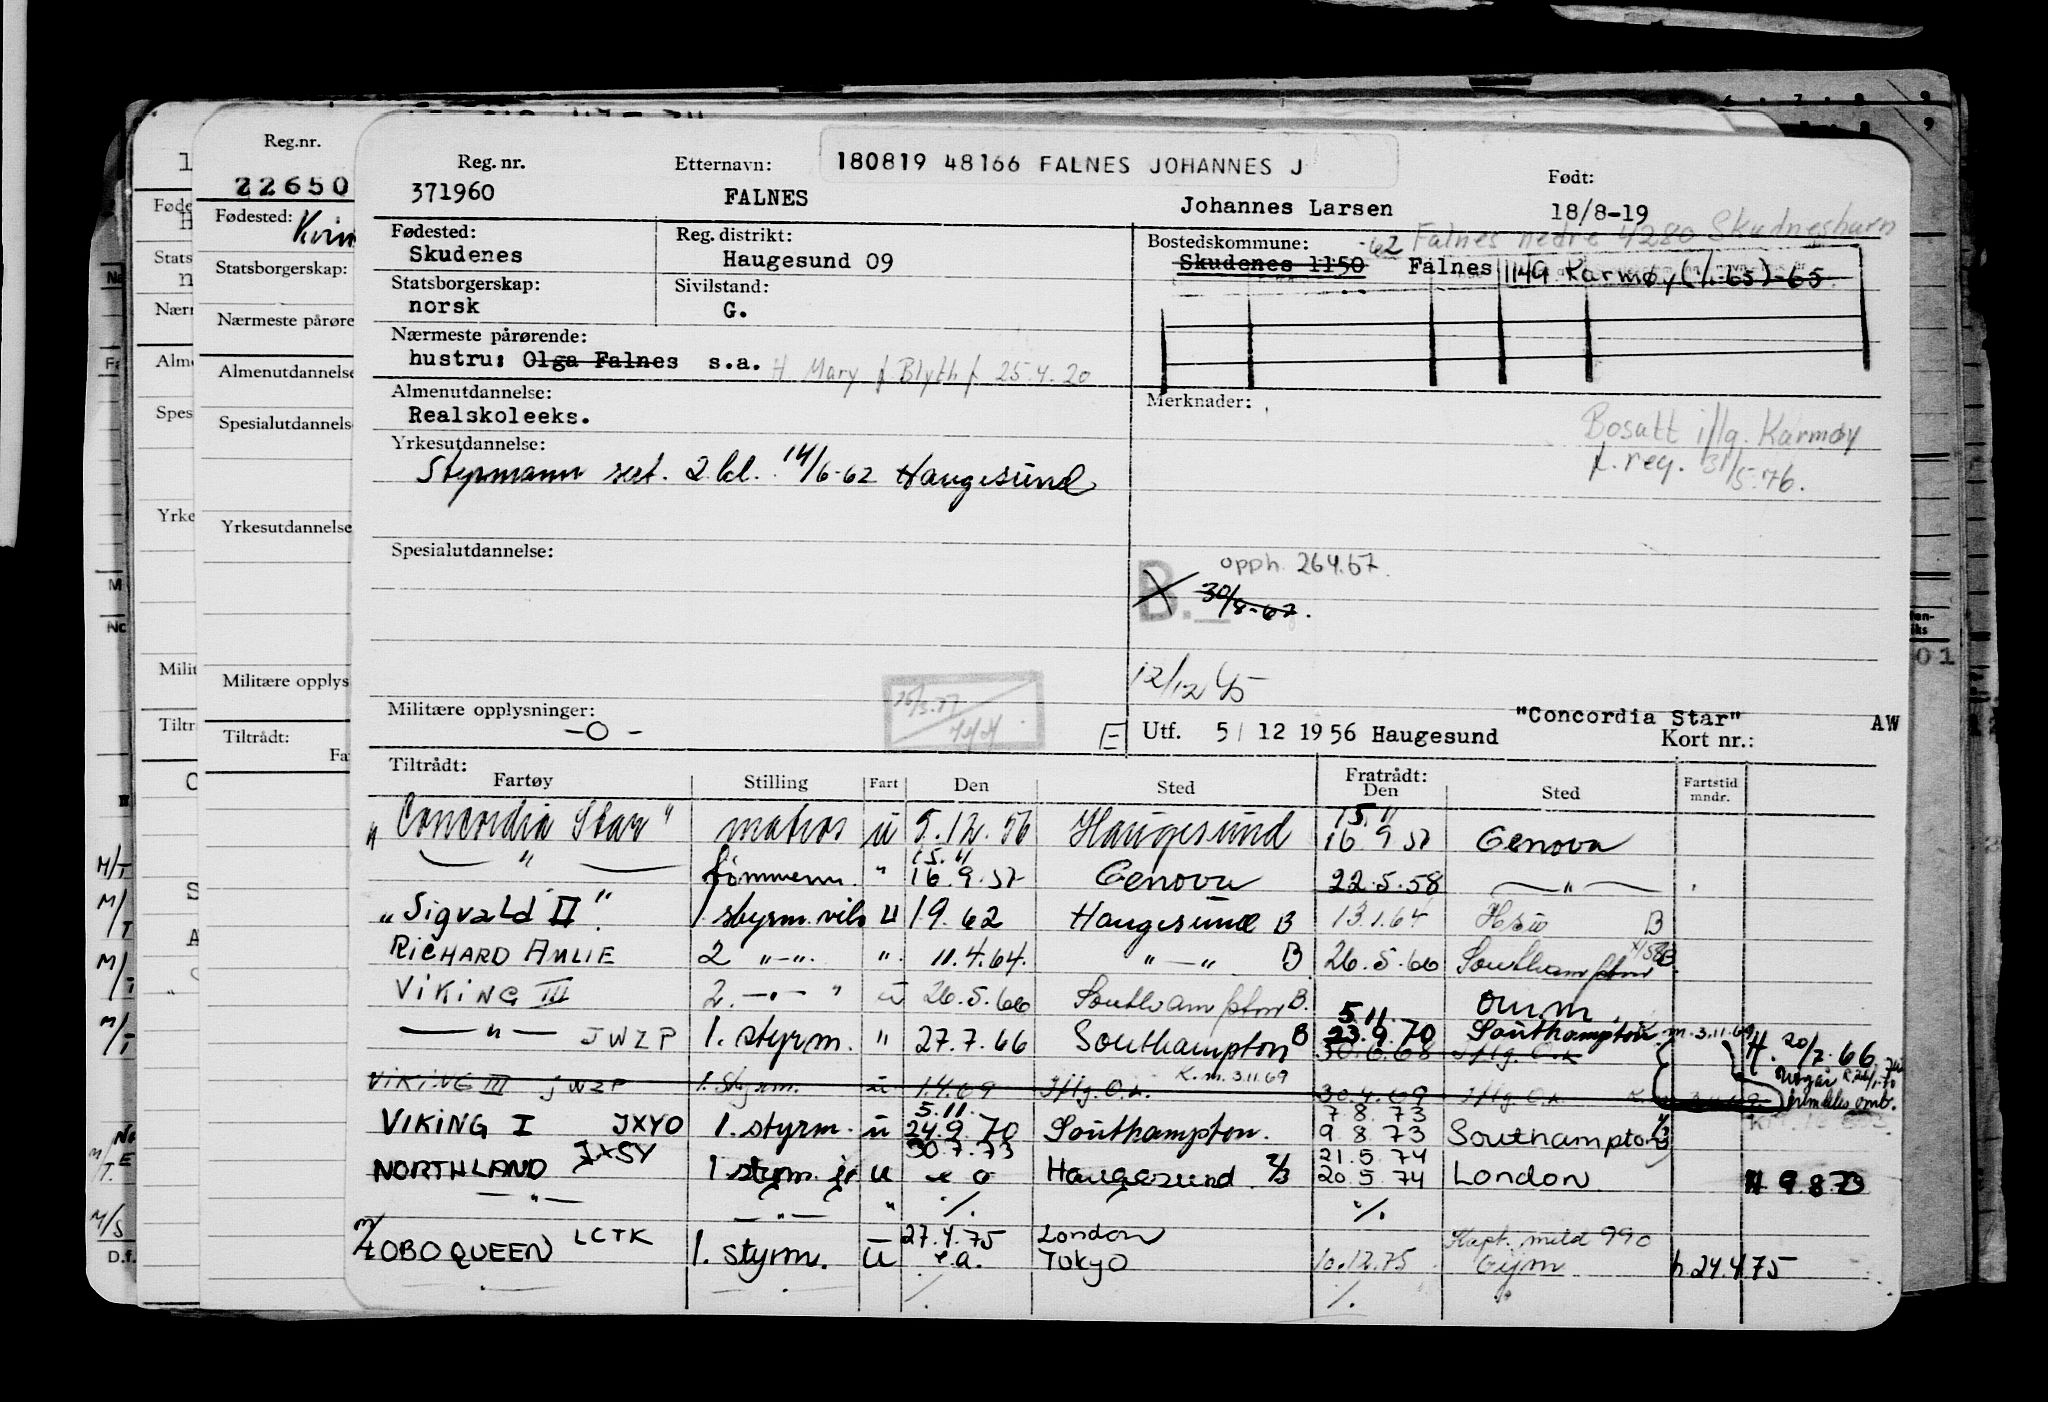 Reg.nr.
22650
Fødested:
Statsborgerskap:
Nærmeste pårøre
Almenutdannelse
Spesialutdannels
Yrkesutdannelse
Militære opplys
Tiltrådt:
180819 48166 FALNES JOHANNES J
Reg. nr. Etternavn: Født:
371960 FALNES Johannes Larsen 18/8-19
Fødested: Reg. distrikt: Bostedskommune: -62 Falnes nedre 4280 Skudneshavn
Skudenes Haugesund 09 Skudenes 1150 Falnes 1149 Karmøy (1/1-65)-65
Statsborgerskap: Sivilstand:
norsk G.
Nærmeste pårørende:
hustru: Olga Falnes s.a. H. Mary f Blyth f. 25.4.20
Almenutdannelse: Merknader:
Realskoleeks. Bosatt i flg. Karmøy
Yrkesutdannelse: f. reg. 31/5.76.
Styrmann sert. 2 kl. 14/6-62 Haugesund
Spesialutdannelse: B. opph. 26.4.67.
30/8-67.
12/12 45
Militære opplysninger: "Concordia Star" AW
-0- E Utf. 5/12 1956 Haugesund Kort nr.:
Tiltrådt: Fratrådt:
Fartøy Stilling Fart Den Sted Den Sted Fartstid mndr.
"Concordia Star" matros u 5.12.56 Haugesund 15.11 16.9.57 Genova
— " — tømmerm. " 15.11 16.9.57 Genova 22.5.58 — " —
"Sigvald II" 1 styrm. vik u 1.9.62 Haugesund B 13.1.64 B
RICHARD AMLIE 2 " — " ". 11.4.64. " — " B 26.5.66 Southampton
VIKING III 2. — " — " u 26.5.66 Southampton B. omm.
— " — JWZP 1. styrm. " 27.7.66 Southampton B 5.11. 23.9.70 Southampton K.m. 3.11.69 H. 20/7.66
30.6.68
VIKING III JWZP 1. styrm. u 1.4.69 Iflg. O.k. K.m. 3.11.69 30.4.69 Iflg. O.k.
VIKING I JXYO 1. styrm. u 5.11. 24.9.70 Southampton. 7.8.73 9.8.73 Southampton
NORTHLAND JXSY 1 styrm. jr u 30.7.73 Haugesund 2/3 21.5.74 20.5.74 London H 9.8.73
— " — — " — " ./. ./.
M/T OBO QUEEN LCTK 1. styrm. u 27.4.75 s.a. London Tokyo 10.12.75 Kapt. meld 990 h. 24.4.75